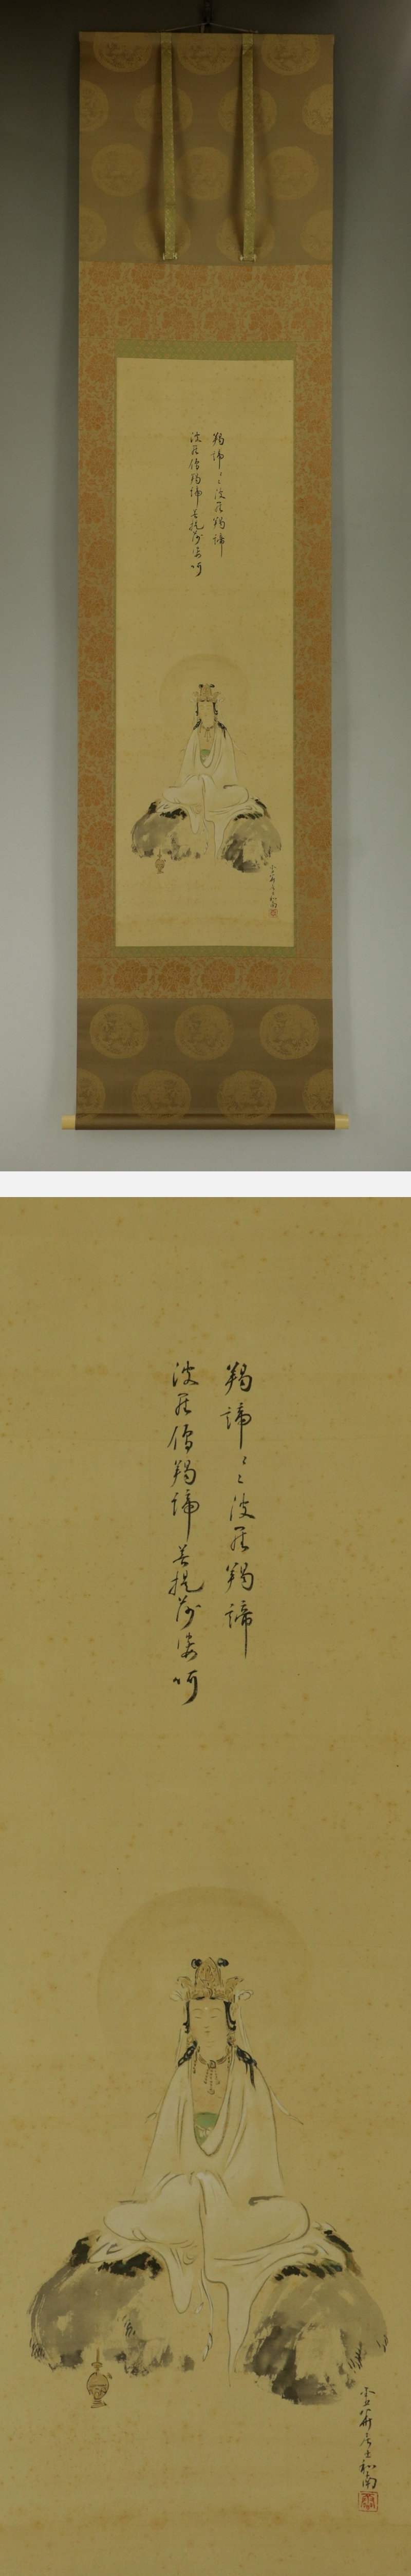 羯諦々々波羅羯諦
波羅僧羯諦菩提薩婆呵